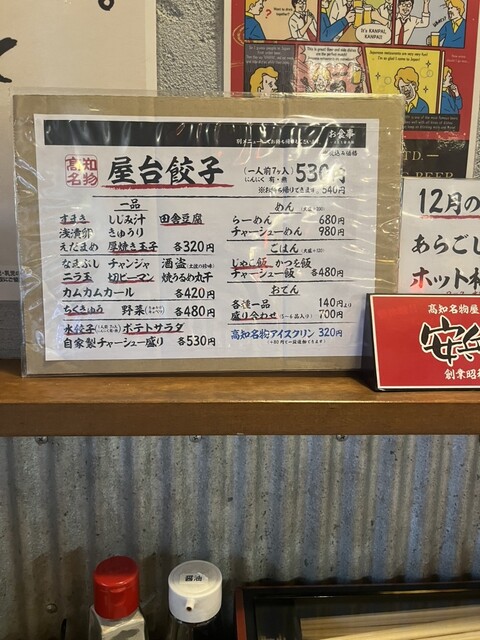 Want to drink together?
It's KANPAI, KANPAI!
I'm so glad I came to Japan!
LTD.
BEER
お食事
高知名物
屋台餃子
(一人前7ヶ入) 530円
にんにく 有・無
※お持ち帰りできます。540円
一品
すまき しじみ汁 田舎豆腐
浅漬け きゅうり
えだまめ 厚焼き玉子 各320円
なまぶし チャンジャ 酒盗
ニラ玉 切ピーマン 焼うるめ丸干
カムカムカール 各420円
ちくきゅう 野菜 各480円
水餃子 ポテトサラダ
自家製チャーシュー盛り 各530円
めん
らーめん 680円
チャーシューめん 980円
ごはん
じゃこ飯 かつを飯
チャーシュー飯 各480円
おでん
各種一品 140円より
盛り合わせ (5〜6品入り) 700円
高知名物アイスクリン 320円
12月の
あらごし
ホット
高知名物屋
安兵
創業昭
醤油